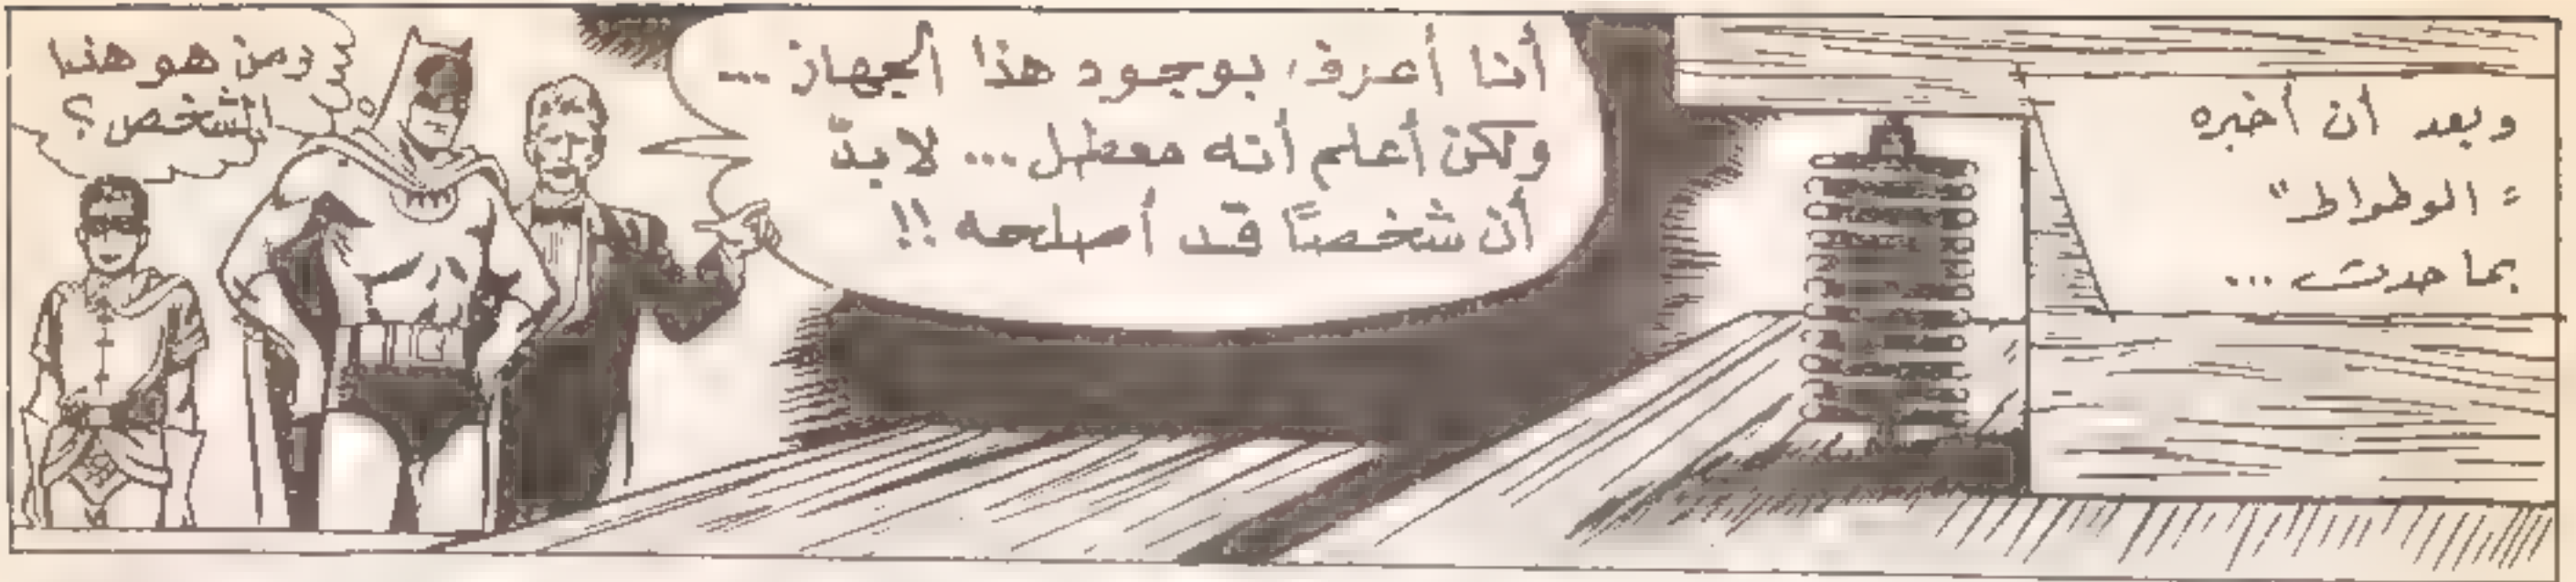 وبعد أن أخبره
"الوطواط"
بما حدث ...
أنا أعرف بوجود هذا الجهاز ...
ولكن أعلم أنه معطل ... لابدّ
أن شخصًا قد أصلحه !!
ومن هو هذا
الشخص ؟